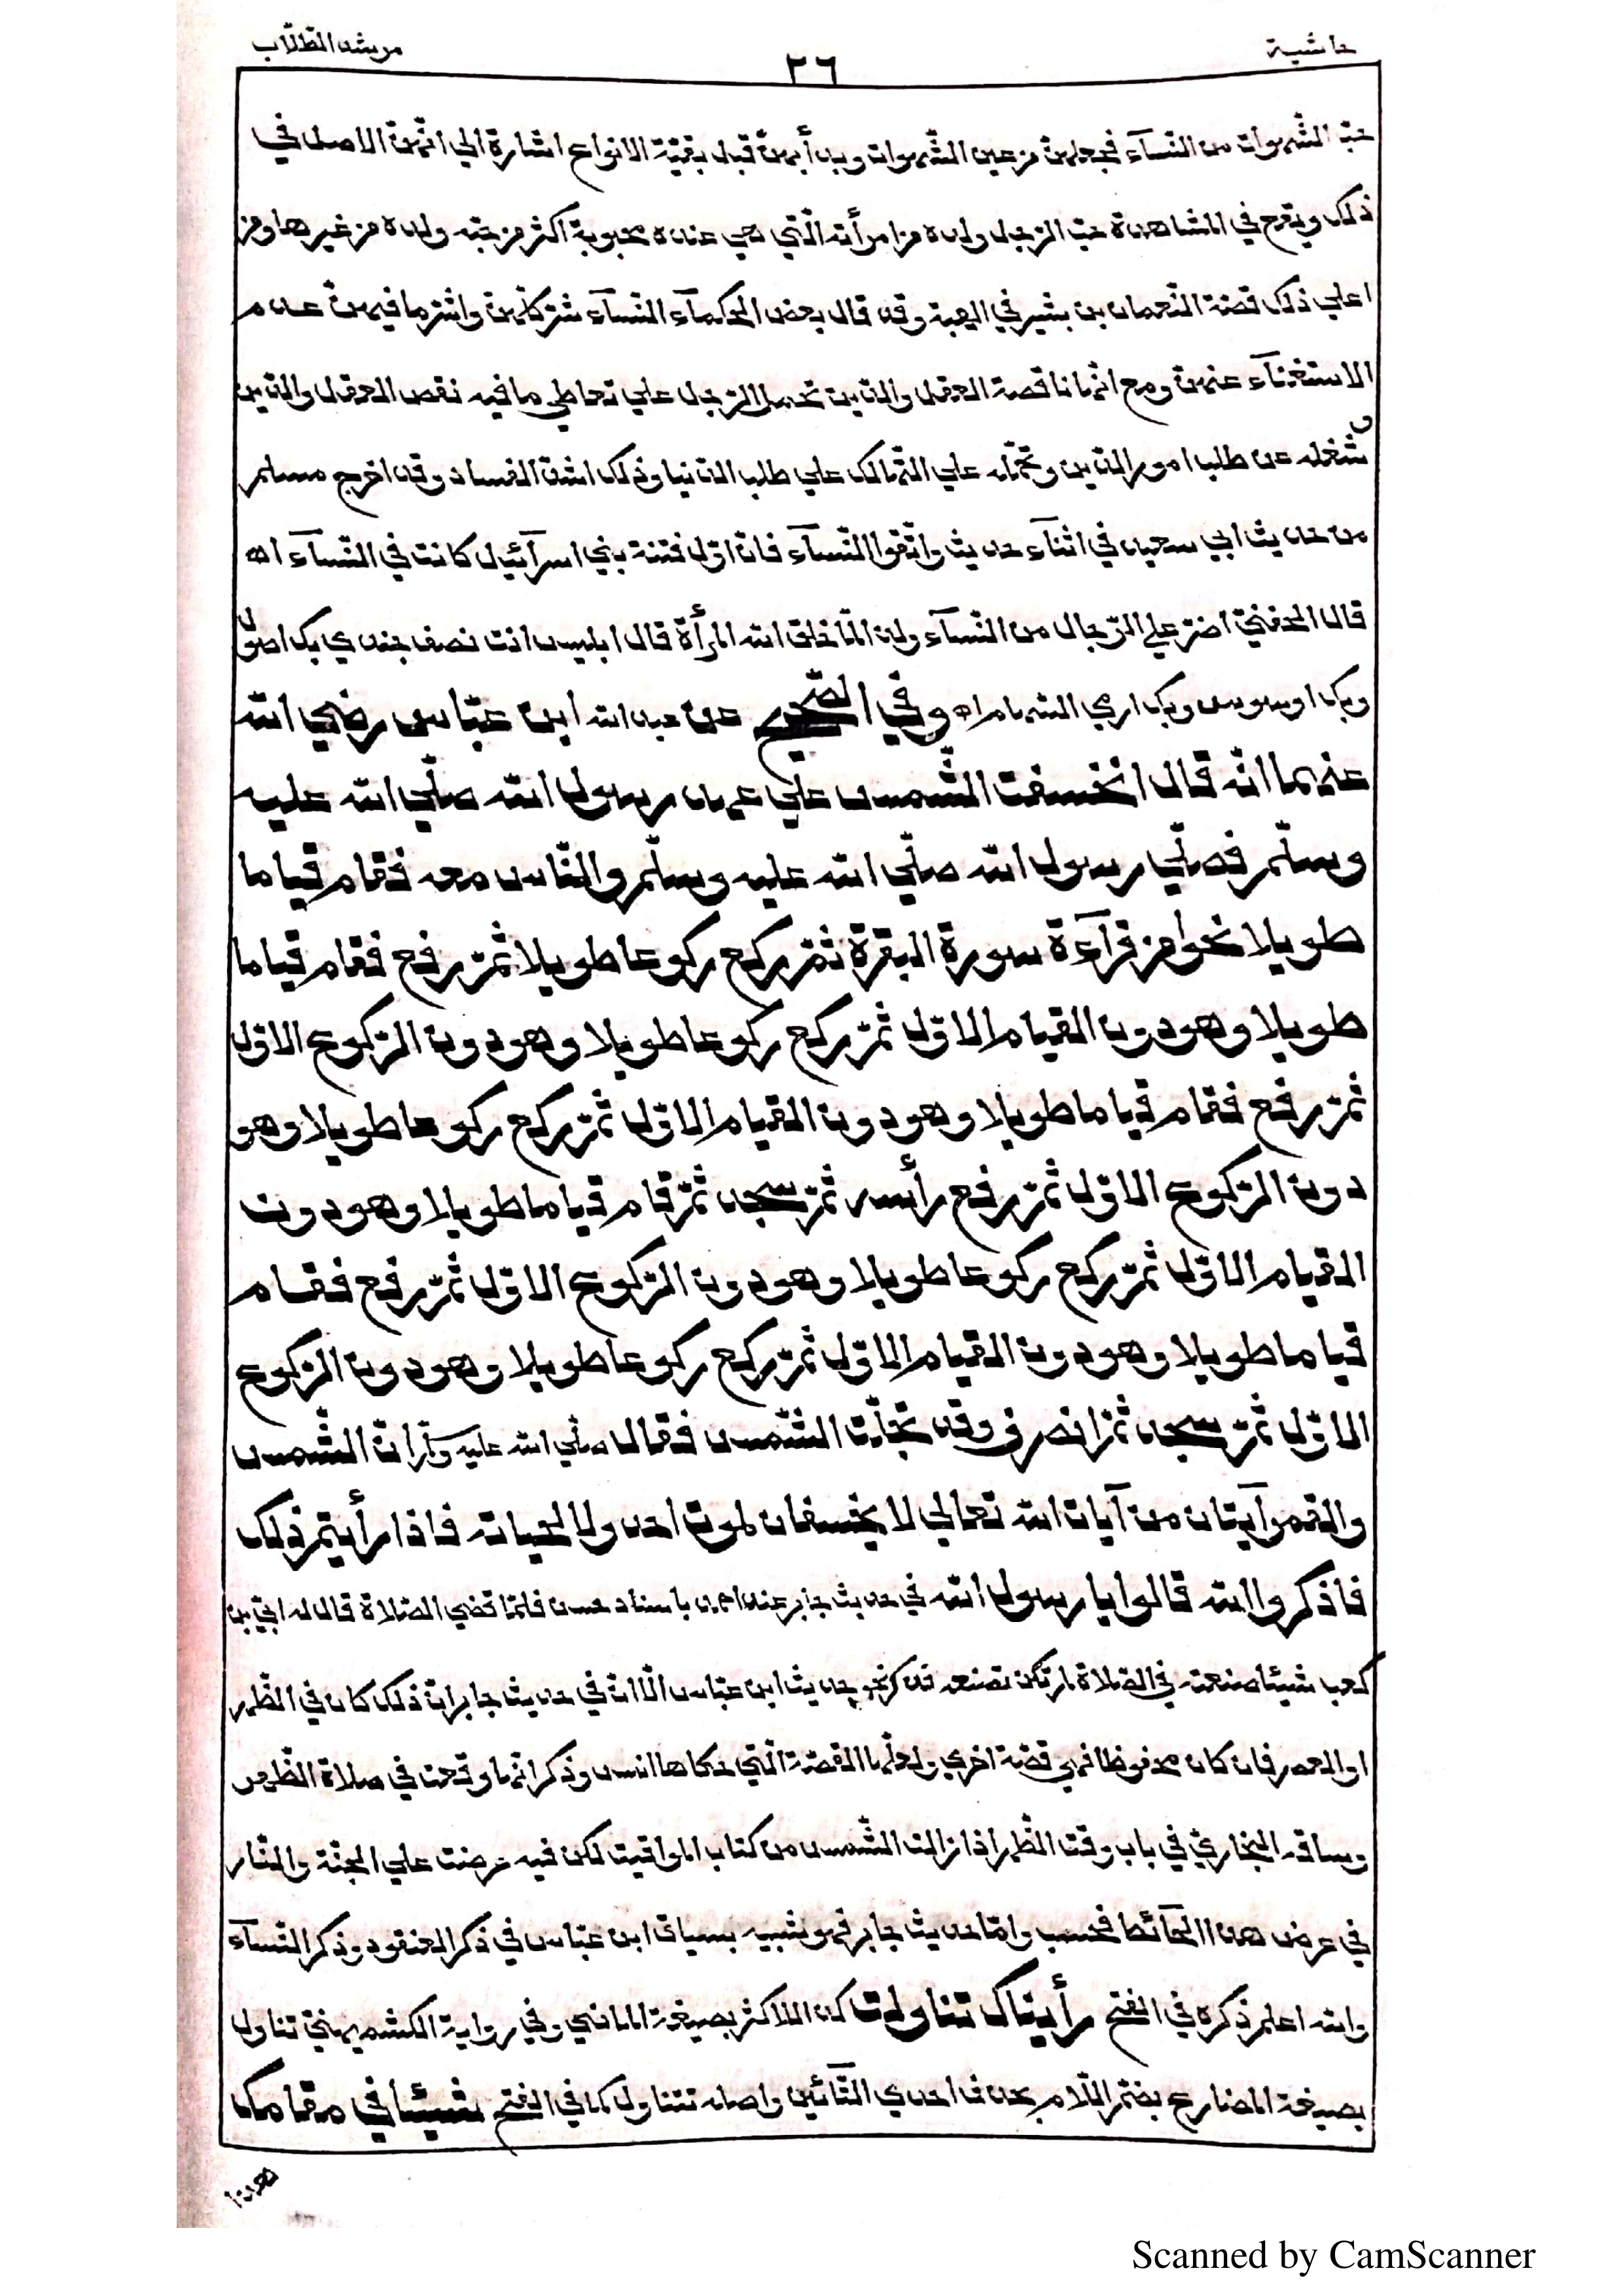 حاشية
٢٦
مرشد الطلّاب
حبّ الشّهوات من النسآء فجعلهنّ من عين الشّهوات وبدأ بهنّ قبل بقيّة الانواع اشارة الي انّهنّ الاصل في
ذلك ويقع في المشاهدة حبّ الرّجل ولده من امرأته الّتي هي عنده محبوبة اكثر من حبّه ولده من غيرها ومن
اعلي ذلك قصّة النّعمان بن بشير في الهبة وقد قال بعض الحكمآء النّسآء شرّ كلّهنّ واشرّ ما فيهنّ عدم
الاستغنآء عنهنّ ومع انّها ناقصة العقل والدّين تحمل الرّجل علي تعاطي ما فيه نقص العقل والدّين
شغله عن طلب امور الدّين وتحمله علي التّهالك علي طلب الدّنيا وذلك اشدّ الفساد وقد اخرج مسلم
من حديث ابي سعيد في اثنآء حديث واتّقوا النّسآء فانّ اوّل فتنة بني اسرآئيل كانت في النّسآء اه
قال الحفنيّ اضرّ علي الرّجال من النّسآء ولذا لمّا خلق الله المرأة قال ابليس انت نصف جندي بك اصول
وبك اوسوس وبك ارمي السّهام اه وفي الصّحيح عن عبد الله ابن عبّاس رضي الله
عنهما انّه قال انخسفت الشّمس علي عهد رسول الله صلّي الله عليه
وسلّم فصلّي رسول الله صلّي الله عليه وسلّم والنّاس معه فقام قياما
طويلا نحوا من قرآءة سورة البقرة ثمّ ركع ركوعا طويلا ثمّ رفع فقام قياما
طويلا وهو دون القيام الاوّل ثمّ ركع ركوعا طويلا وهو دون الرّكوع الاوّل
ثمّ رفع فقام قياما طويلا وهو دون القيام الاوّل ثمّ ركع ركوعا طويلا وهو
دون الرّكوع الاوّل ثمّ رفع رأسه ثمّ سجد ثمّ قام قياما طويلا وهو دون
القيام الاوّل ثمّ ركع ركوعا طويلا وهو دون الرّكوع الاوّل ثمّ رفع فقام
قياما طويلا وهو دون القيام الاوّل ثمّ ركع ركوعا طويلا وهو دون الرّكوع
الاوّل ثمّ سجد ثمّ انصرف وقد تجلّت الشّمس فقال صلّي الله عليه وآله انّ الشّمس
والقمر آيتان من آيات الله تعالي لا يخسفان لموت احد ولا لحياته فاذا رأيتم ذلك
فاذكروا الله قالوا يا رسول الله في حديث جابر عند احمد باسناد حسن فلمّا قضي الصّلاة قال له ابيّ بن
كعب شيئا صنعته في الصّلاة لم تكن تصنعه فذكر نحو حديث ابن عبّاس الّا انّ في حديث جابر انّ ذلك كان في الظّهر
او العصر فان كان محفوظا فهي قصّة اخري ولعلّها القصّة الّتي حكاها انس وذكر انّها وقعت في صلاة الظّهر
وساقه البخاريّ في باب وقت الظّهر اذا زالت الشّمس من كتاب المواقيت لكن فيه عرضت علي الجنّة والنّار
في عرض هذا الحآئط فحسب وامّا حديث جابر فهو شبيه بسياق ابن عبّاس في ذكر العنقود وذكر النّسآء
والله اعلم ذكره في الفتح رأيناك تناولت كذا للاكثر بصيغة الماضي وفي رواية الكشميهنيّ تناول
بصيغة المضارع بضمّ اللّام بحذف احدي التّائين واصله تتناول كما في الفتح شيئا في مقامك
هذا